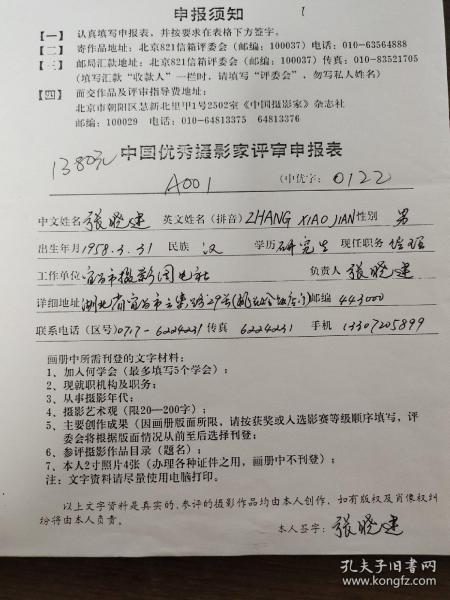 申报须知
【一】 认真填写申报表，并按要求在表格下方签字。
【二】 寄作品地址：北京821信箱评委会（邮编：100037）电话：010-63564888
【三】 邮局汇款地址：北京821信箱评委会（邮编：100037）传真：010-83521705
（填写汇款“收款人”一栏时，请填写“评委会”，勿写私人姓名）
【四】 面交作品及评审指导费地址：
北京市朝阳区慧新北里甲1号2502室《中国摄影家》杂志社
邮编：100029 电话：010-64813375 64813376
1380元
中国优秀摄影家评审申报表
A001 （中优字：0122
中文姓名 張晓建 英文姓名（拼音）ZHANG XIAO JIAN 性别 男
出生年月 1958.3.31 民族 汉 学历 研究生 现任职务 经理
工作单位 宜昌市摄影图片社 负责人 張晓建
详细地址 湖北省宜昌市 29号 邮编 443000
联系电话（区号）0717-6224231 传真 6224231 手机 13307205899
画册中所需刊登的文字材料：
1、加入何学会（最多填写5个学会）；
2、现就职机构及职务；
3、从事摄影年代；
4、摄影艺术观（限20—200字）；
5、主要创作成果（因画册版面所限，请按获奖或入选影赛等级顺序填写，评
委会将根据版面情况从前至后选择刊登；
6、参评摄影作品目录（题名）；
7、本人2寸照片4张（办理各种证件之用，画册中不刊登）；
注：文字资料请尽量使用电脑打印。
以上文字资料是真实的，参评的摄影作品均由本人创作，如有版权及肖像权纠
纷将由本人负责。
本人签字：張晓建
孔夫子旧书网
www.kongfz.com